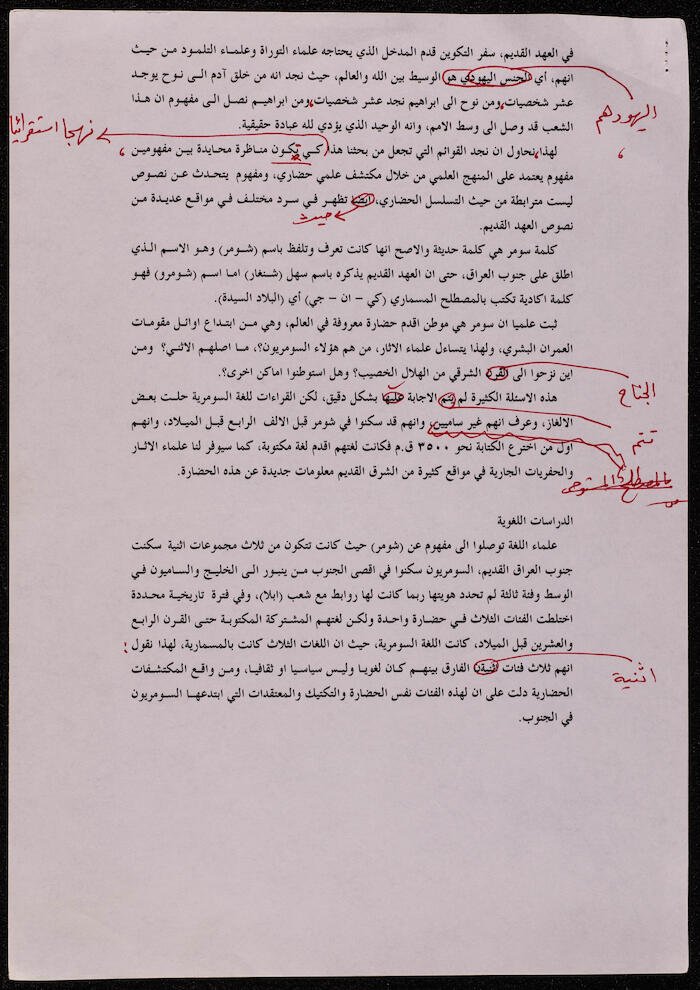 في العهد القديم، سفر التكوين قدم المدخل الذي يحتاجه علماء التوراة وعلماء التلمود من حيث
انهم، أي الجنس اليهودي هو الوسيط بين الله والعالم، حيث نجد انه من خلق آدم الى نوح يوجد
اليهود هم
عشر شخصيات، ومن نوح الى ابراهيم نجد عشر شخصيات، ومن ابراهيم نصل الى مفهوم ان هذا
الشعب قد وصل الى وسط الامم، وانه الوحيد الذي يؤدي لله عبادة حقيقية.
نهجا استقرائيا
لهذا، نحاول ان نجد القوائم التي تجعل من بحثنا هذا كي تكون مناظرة محايدة بين مفهومين،
مفهوم يعتمد على المنهج العلمي من خلال مكتشف علمي حضاري، ومفهوم يتحدث عن نصوص
ليست مترابطة من حيث التسلسل الحضاري، ايضا تظهر في سرد مختلف في مواقع عديدة من
حيث
نصوص العهد القديم.
كلمة سومر هي كلمة حديثة والاصح انها كانت تعرف وتلفظ باسم (شومر) وهو الاسم الذي
اطلق على جنوب العراق، حتى ان العهد القديم يذكره باسم سهل (شنغار) اما اسم (شومرو) فهو
كلمة اكادية تكتب بالمصطلح المسماري (كي - ان - جي) أي (البلاد السيدة).
ثبت علميا ان سومر هي موطن اقدم حضارة معروفة في العالم، وهي من ابتداع اوائل مقومات
العمران البشري، ولهذا يتساءل علماء الاثار، من هم هؤلاء السومريون؟، ما اصلهم الاثني؟ ومن
اين نزحوا الى القرد الشرقي من الهلال الخصيب؟ وهل استوطنوا اماكن اخرى؟.
الجناح
هذه الاسئلة الكثيرة لم يتم الاجابة عليها بشكل دقيق، لكن القراءات للغة السومرية حلت بعض
الالغاز، وعرف انهم غير ساميين، وانهم قد سكنوا في شومر قبل الالف الرابع قبل الميلاد، وانهم
تتم
اول من اخترع الكتابة نحو ٣٥٠٠ ق.م فكانت لغتهم اقدم لغة مكتوبة، كما سيوفر لنا علماء الاثار
والحفريات الجارية في مواقع كثيرة من الشرق القديم معلومات جديدة عن هذه الحضارة.
الدراسات اللغوية
علماء اللغة توصلوا الى مفهوم عن (شومر) حيث كانت تتكون من ثلاث مجموعات اثنية سكنت
جنوب العراق القديم، السومريون سكنوا في اقصى الجنوب من ينبور الى الخليج والساميون في
الوسط وفئة ثالثة لم تحدد هويتها ربما كانت لها روابط مع شعب (ابلا)، وفي فترة تاريخية محددة
اختلطت الفئات الثلاث في حضارة واحدة ولكن لغتهم المشتركة المكتوبة حتى القرن الرابع
والعشرين قبل الميلاد، كانت اللغة السومرية، حيث ان اللغات الثلاث كانت بالمسمارية، لهذا نقول:
انهم ثلاث فئات الفارق بينهم كان لغويا وليس سياسيا او ثقافيا، ومن واقع المكتشفات
اثنية
الحضارية دلت على ان لهذه الفئات نفس الحضارة والتكتيك والمعتقدات التي ابتدعها السومريون
في الجنوب.